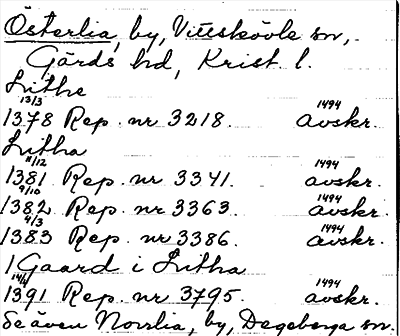 Österlia, by, Vittskövle sn,
Gärds hd, Krist. l.
Lithe
13/3 1494
1378 Rep. nr 3218. avskr.
Litha
11/12 1494
1381 Rep. nr 3341. avskr.
9/10 1494
1382 Rep. nr 3363. avskr.
9/3 1494
1383 Rep. nr 3386. avskr.
1 Gaard i Litha
1494
1391 Rep. nr 3795. avskr.
Se även Norrlia, by, Degeberga sn.